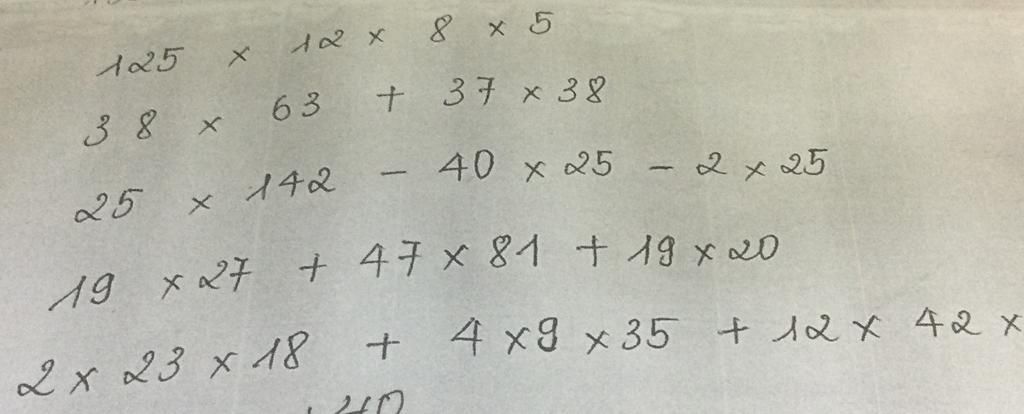 125 × 12 × 8 × 5
38 × 63 + 37 × 38
25 × 142 - 40 × 25 - 2 × 25
19 × 27 + 47 × 81 + 19 × 20
2 × 23 × 18 + 4 × 9 × 35 + 12 × 42 ×